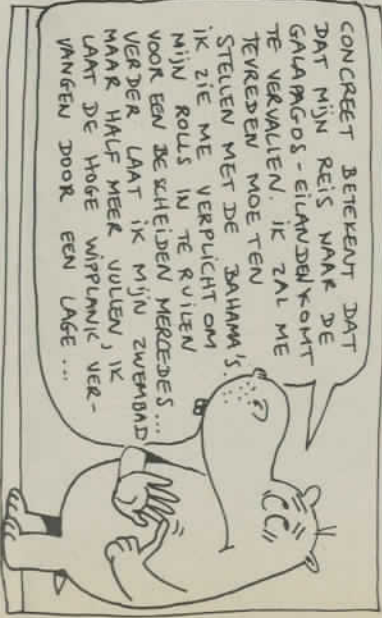 CONCREET BETEKENT DAT
DAT MIJN REIS NAAR DE
GALAPAGOS-EILANDEN KOMT
TE VERVALLEN. IK ZAL ME
TEVREDEN MOETEN
STELLEN MET DE BAHAMA'S.
IK ZIE ME VERPLICHT OM
MIJN ROLLS IN TE RUILEN
VOOR EEN BESCHEIDEN MERCEDES...
VERDER LAAT IK MIJN ZWEMBAD
MAAR HALF MEER VULLEN, IK
LAAT DE HOGE WIPPLANK VER-
VANGEN DOOR EEN LAGE...